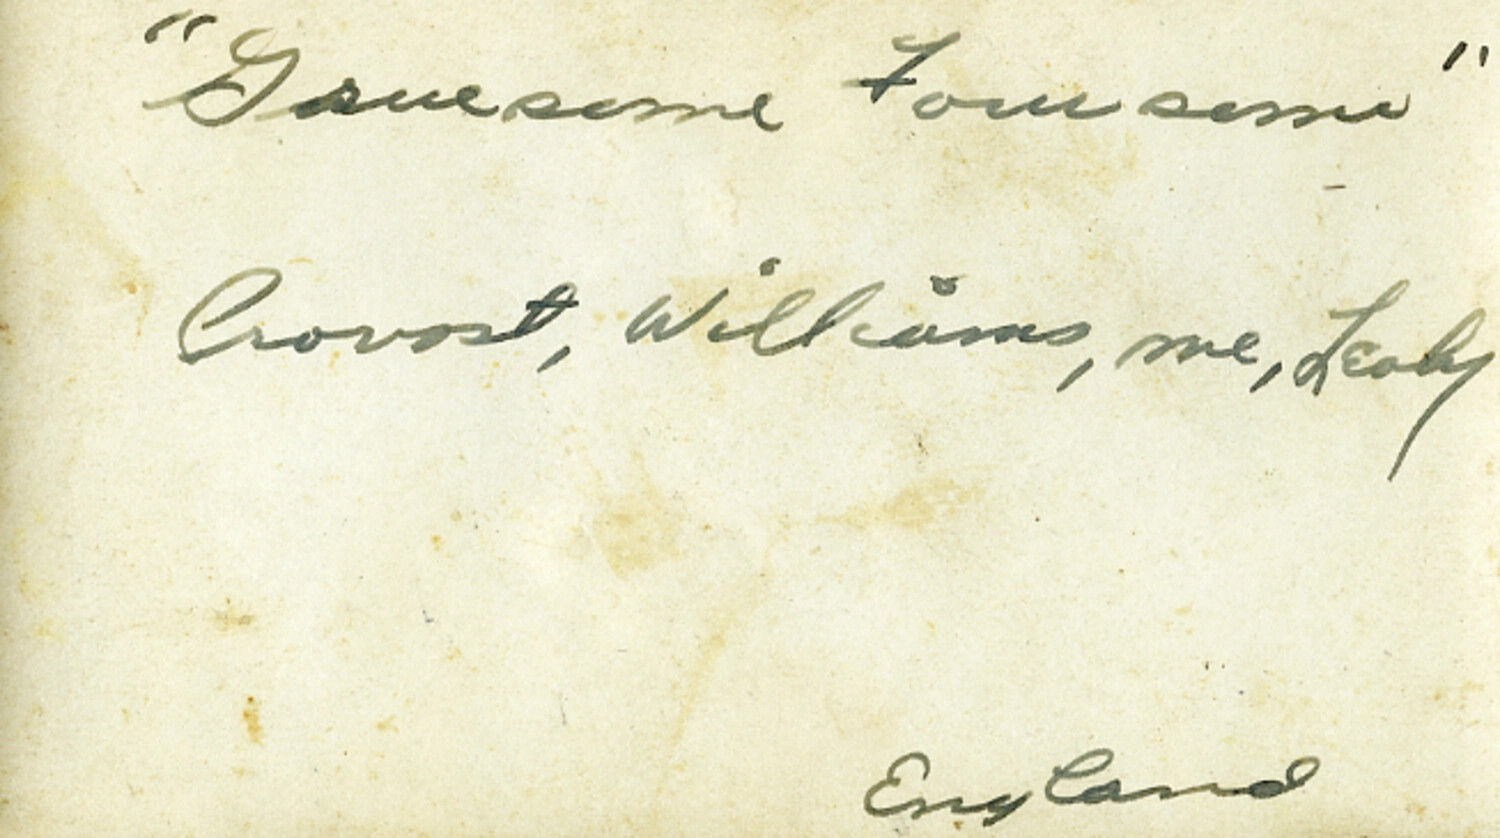 "Gruesome Foursome"
Provost, Williams, me, Leahy
England